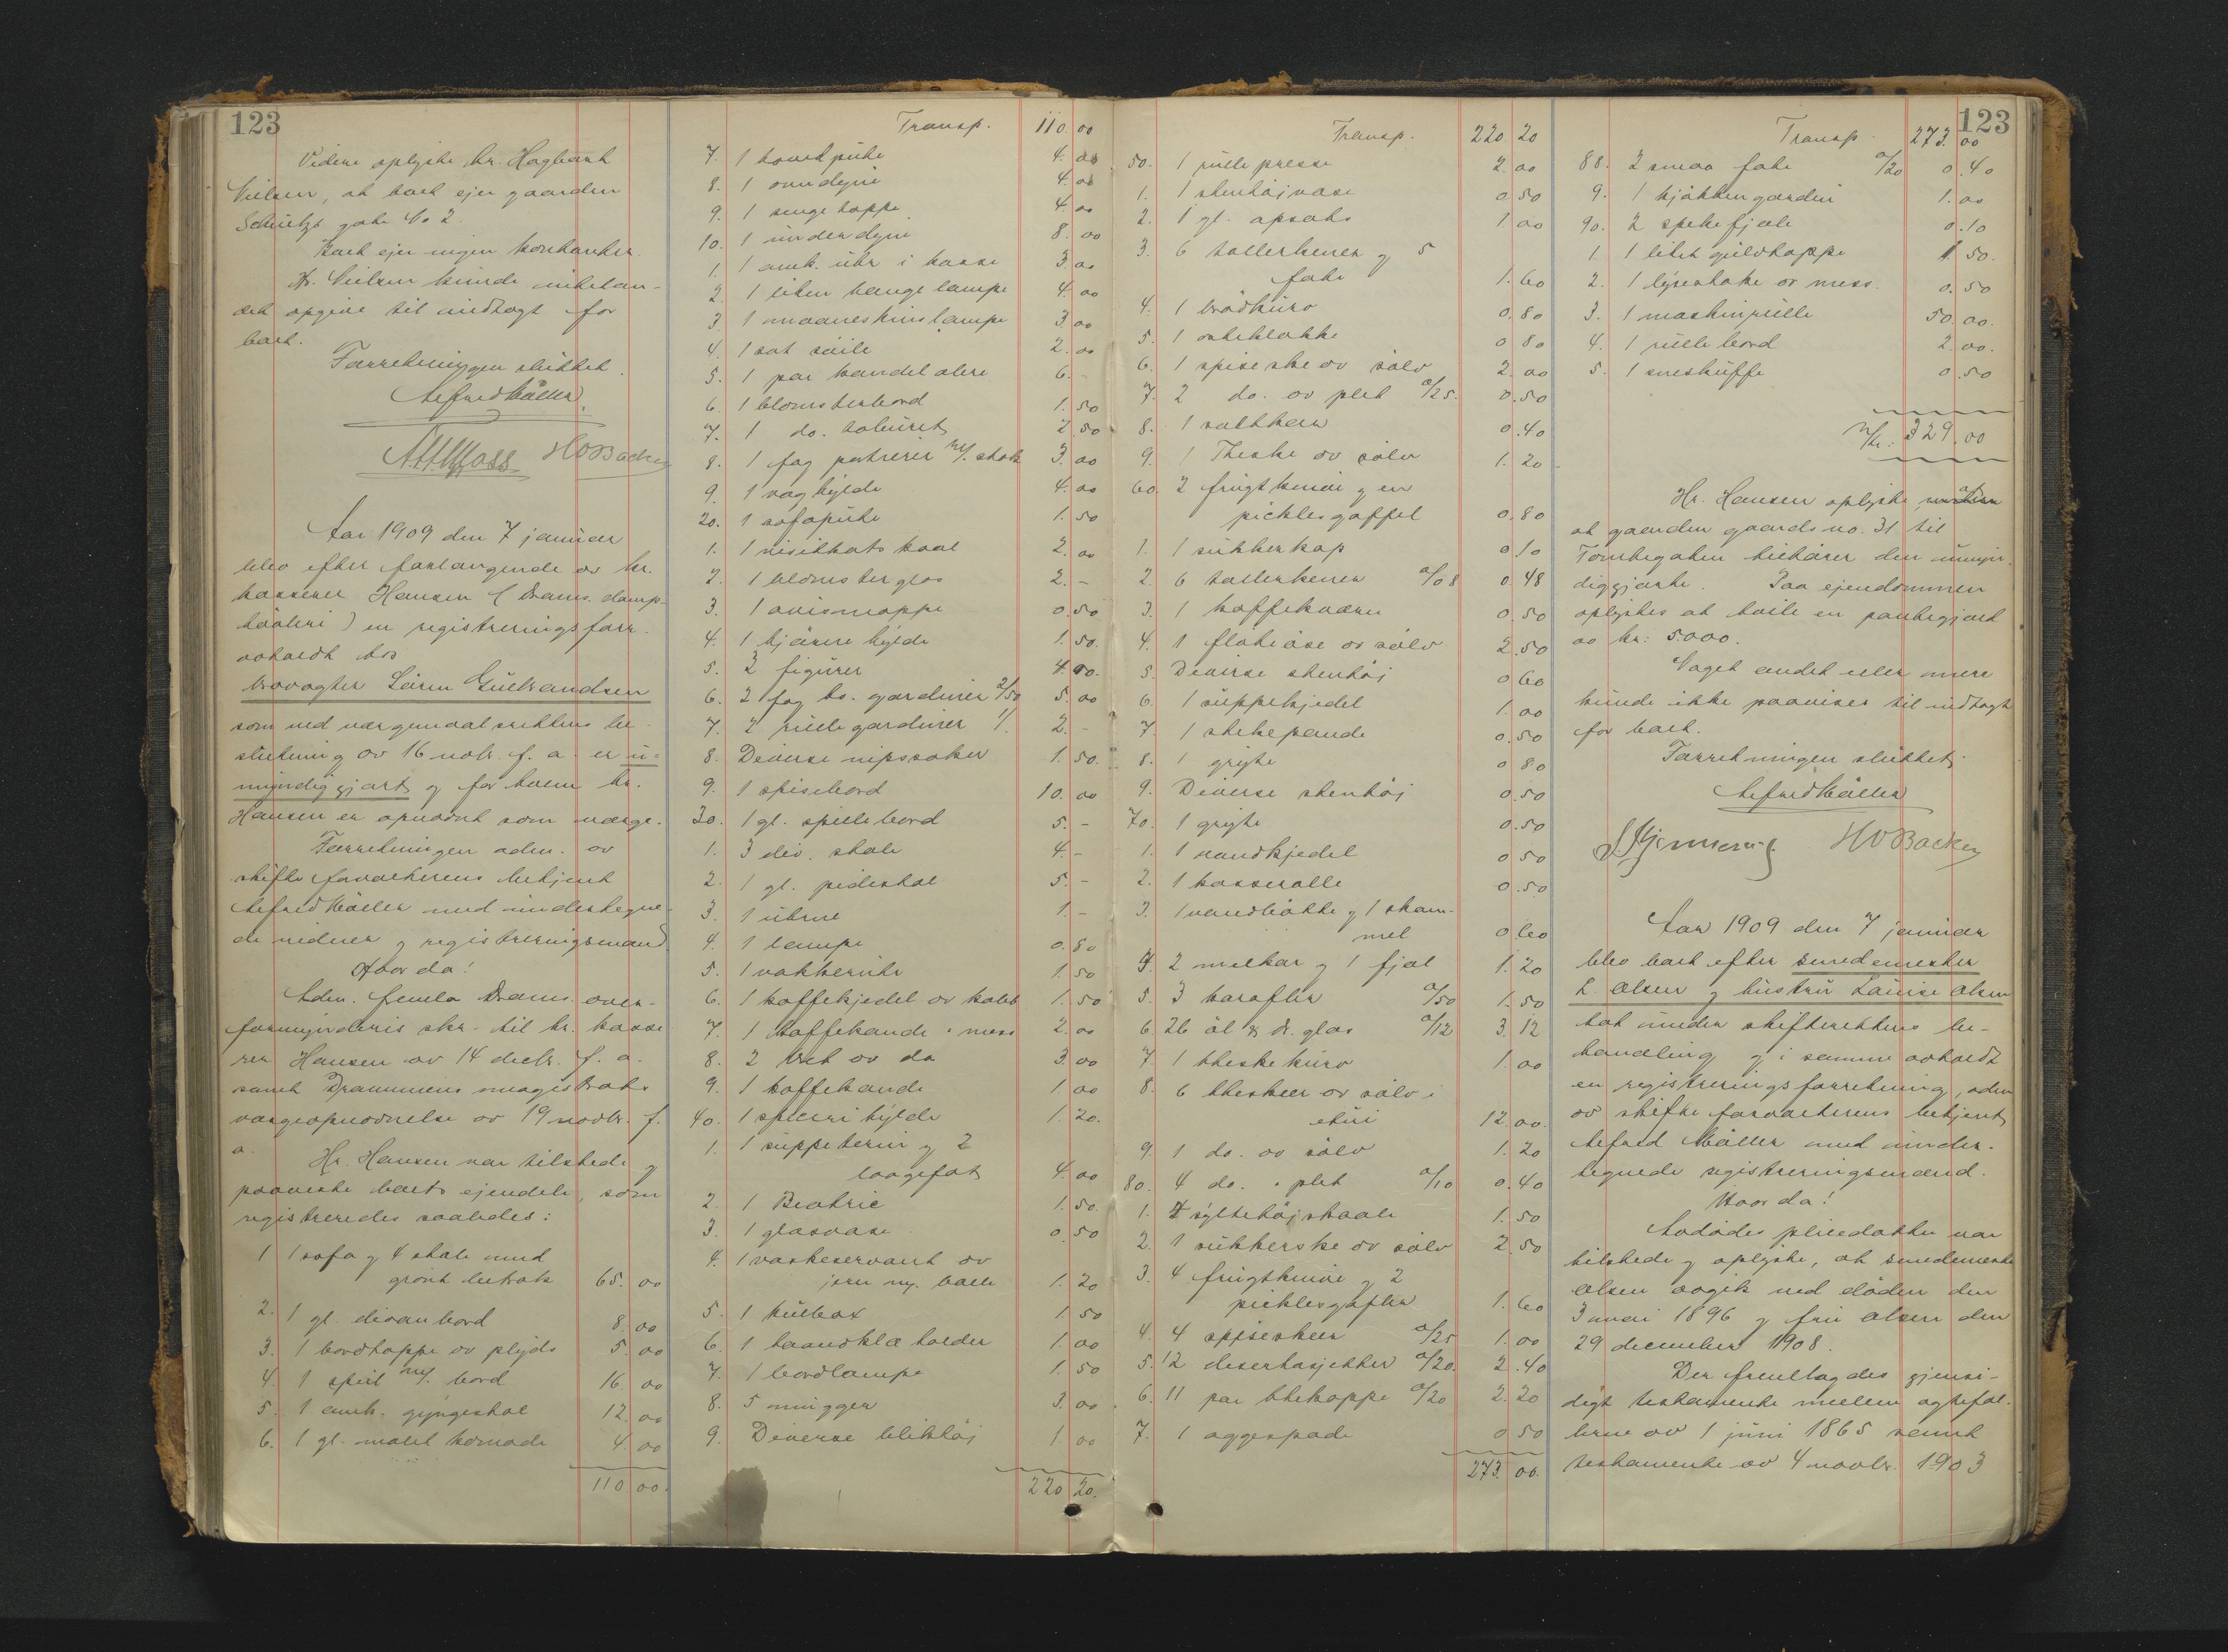 123
Videre oplyste hr. Hagbart
Nielsen, at boet ejer gaarden
Schultz gate No 2.
Boet ejer ingen kontanter.
Hr. Nielsen kunde intet an-
det opgive til indtægt for
boet.
Forretningen sluttet.
Alfred Møller
HO Backer
Aar 1909 den 7 januar
blev efter forlangende av hr.
kasserer Hansen (Drams. damp-
høvleri) en registreringsforr.
avholdt hos
Søren Gulbrandsen
som ved værgemaalsrettens be-
slutning av 16 novbr. f. a. er u-
myndiggjort og for hvem hr.
Hansen er opnævnt som værge.
Forretningen adm. av
skifteforvalterens betjent
Alfred Møller med undertegne-
de vidner og registreringsmænd
Hvor da!
Adm. fremla Drams. over-
formynderis skr. til hr. kasse
rer Hansen av 14 decbr. f. a.
samt Drammens magistrats
værgeopnævnelse av 19 novbr. f.
a.
Hr. Hansen var tilstede og
paaviste boets ejendele, som
registreredes saaledes:
1 1 sofa og 4 stole med
grønt betræk 65.00
2. 1 gl. divanbord 8.00
3. 1 bordteppe av plyds 5.00
4. 1 speil m/. bord 16.00
5. 1 amk. gyngestol 12.00
6. 1 gl. malet komode 4.00
110.00
Transp. 110.00
7. 1 hovedpute 4.00
8. 1 overdyne 4.00
9. 1 sengeteppe 4.00
10. 1 underdyne 8.00
1. 1 amk. uhr i kasse 3.00
2. 1 liten hengelampe 4.00
3. 1 maaneskinslampe 3.00
4. 1 sat søile 2.00
5. 1 par kandelabre 6.-
6. 1 blomsterbord 1.50
7. 1 do. taburet 2.50
8. 1 fag portierer m/. stok 3.00
9. 1 væghylde 4.00
20. 1 sofapute 1.50
1. 1 visitkortskaal 2.00
2. 1 blomsterglas 2.-
3. 1 avismappe 0.50
4. 1 hjørnehylde 1.50.
5. 2 figurer 4.00.
6. 2 fag br. gardiner 2/50 5.00
7. 2 rullegardiner 1/ 2.-
8. Diverse nipssaker 1.50.
9. 1 spisebord 10.00
30. 1 gl. spillebord 5.-
1. 3 div. stole 4.-
2. 1 gl. pidestal 5.-
3. 1 uhrne 1.-
4. 1 lampe 0.80
5. 1 vækkeruhr 1.50
6. 1 kaffekjedel av kobb 1.50
7. 1 kaffekande " mess 2.00
8. 2 bret av do 3.00
9. 1 kaffekande 1.00
40. 1 spicerihylde 1.20.
1. 1 suppeterin og 2
laagefat 4.00
2. 1 Beatrice 1.50.
3. 1 glasvase 0.50
4. 1 vaskeservant av
jern m/. balle 1.20
5. 1 kulbox 1.50
6. 1 haandklæholder 1.00
7. 1 bordlampe 1.50
8. 5 mugger 3.00
9. Diverse bliktøj 1.00
220 20.
Transp. 220 20
50. 1 rullepresse 2.00
1. 1 stentøjvase 0.50
2. 1 gl. opsats 1.00
3. 6 tallerkener og 5
fate 1.60
4. 1 brødkurv 0.80
5. 1 osteklokke 0.80
6. 1 spiseske av sølv 2.00
7. 2 do. av plet a/25. 0.50
8. 1 saltkar 0.40
9. 1 Theske av sølv 1.20
60. 2 frugtknive og en
picklesgaffel 0.80
1. 1 sukkerkop 0.10
2. 6 tallerkener a/08 0.48
3. 1 kaffekværn 0.50
4. 1 fløteøse av sølv 2.50
5. Diverse stentøj 0.60
6. 1 suppekjedel 1.00
7. 1 stekepande 0.50
8. 1 gryte 0.80
9. Diverse stentøj 0.50
70. 1 gryte 0.50
1. 1 vandkjedel 0.50
2. 1 kasserolle 0.50
3. 1 vandbøtte og 1 skam-
mel 0.60
4. 2 melkar og 1 fjøl 1.20
5. 3 karafler a/50 1.50
6. 26 øl & dr. glas a/12 3.12
7. 1 theskekurv 1.00
8. 6 theskeer av sølv i
etui 12.00.
9. 1 do. av sølv 1.20
80. 4 do. " plet a/10 0.40
1. 7 syltetøjskaale 1.50
2. 1 sukkerske av sølv 2.50
3. 4 frugtknive og 2
picklesgafler 1.60
4. 4 spiseskeer a/25 1.00
5. 12 desertasjetter a/20. 2.40
6. 11 par thekopper a/20 2.20
7. 1 æggespade 0.50
273.00.
123
Transp. 273.00
88. 2 smaa fate a/20 0.40
9. 1 kjøkkengardin 1.00
90. 2 spekefjøle 0.10
1. 1 litet gulvteppe 1.50.
2. 1 lysestake av mess. 0.50
3. 1 maskinrulle 50.00.
4. 1 rullebord 2.00.
5. 1 sneskuffe 0.50
329.00
Hr. Hansen oplyste
at gaarden gaardsno. 31 til
Tomtegaten tilhører den umyn-
diggjorte. Paa ejendommen
oplystes at hvile en pantegjæld
av kr: 5000.
Noget andet eller mere
kunde ikke paavises til indtægt
for boet.
Forretningen sluttet.
Alfred Møller
HO Backer
Aar 1909 den 7 januar
blev boet efter smedemester
L. Olsen og hustru Louise Olsen
tat under skifterettens be-
handling og i samme avholdt
en registreringsforretning, adm
av skifteforvalterens betjent
Alfred Møller med under-
tegnede registreringsmænd.
Hvor da!
Avdødes pleiedatter var
tilstede og oplyste, at smedemester
Olsen avgik ved døden den
3 mai 1896 og fru Olsen den
29 december 1908.
Der fremlagdes gjensi-
digt testamente mellem ægtefol-
kene av 1 juni 1865 samt
testamente av 4 novbr. 1903